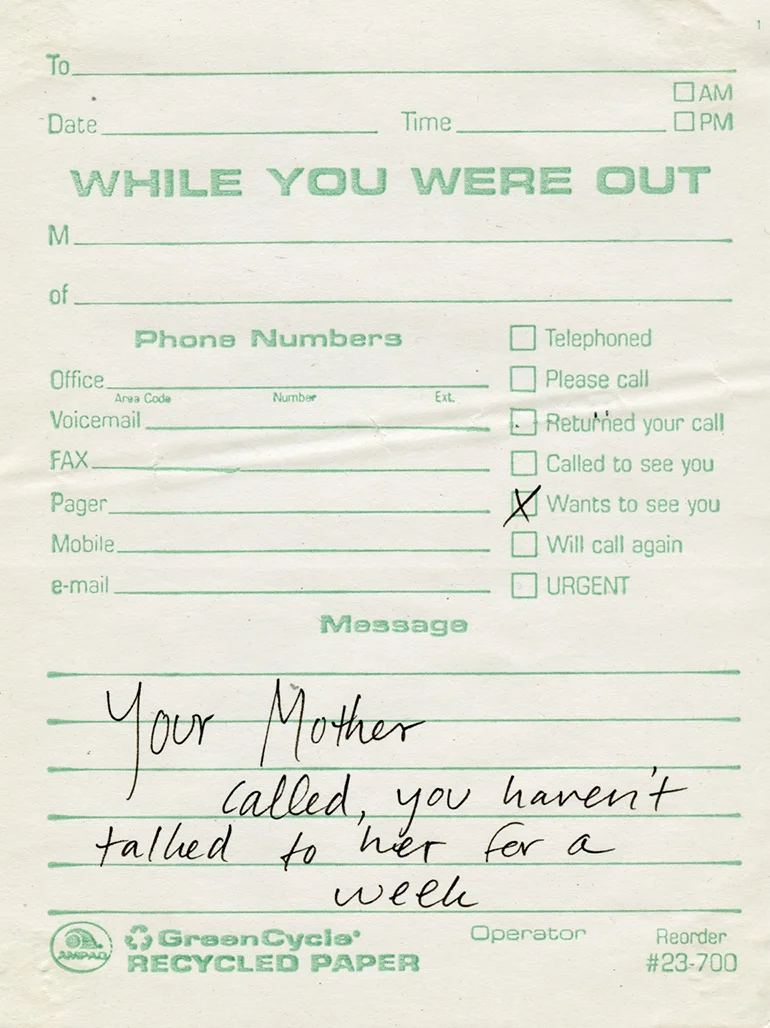 1
To
AM
Date Time PM
WHILE YOU WERE OUT
M
of
Phone Numbers
Telephoned
Office
Please call
Area Code Number Ext.
Voicemail
Returned your call
FAX
Called to see you
Pager
X Wants to see you
Mobile
Will call again
e-mail
URGENT
Message
Your Mother
called, you haven't
talked to her for a
week
AMPAD
GreenCycle
RECYCLED PAPER
Operator
Reorder
#23-700